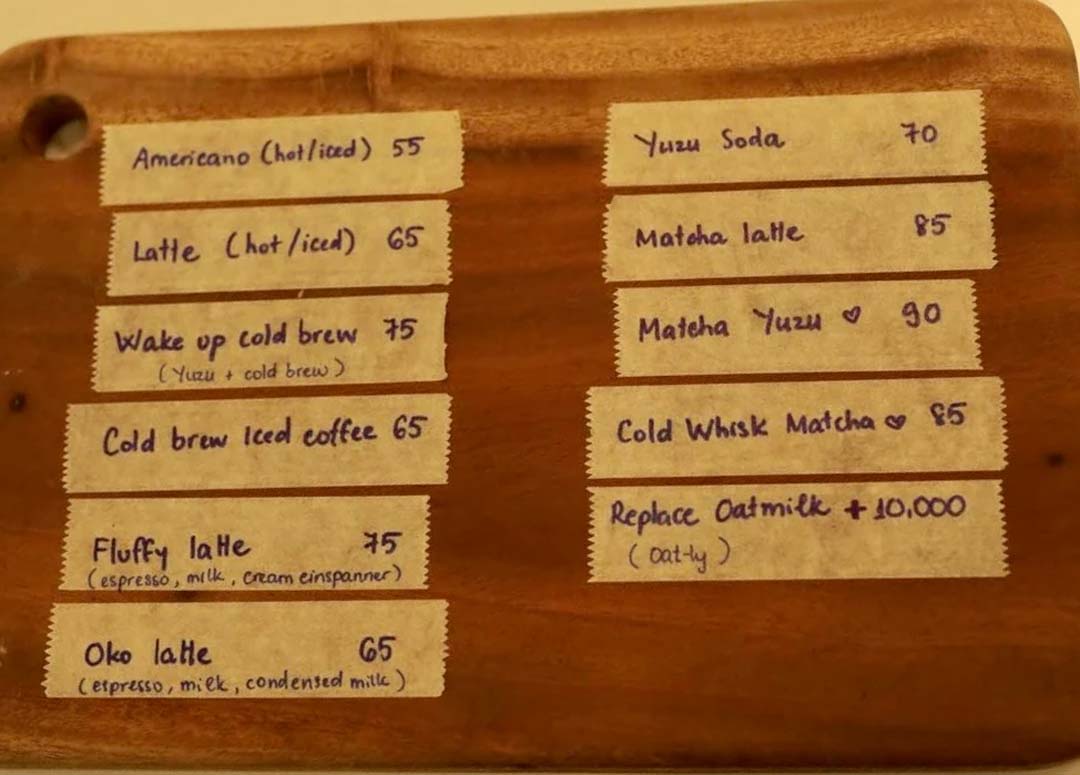 Americano (hot/iced) 55
Latte (hot/iced) 65
Wake up cold brew 75
(Yuzu + cold brew)
Cold brew Iced coffee 65
Fluffy latte 75
(espresso, milk, cream einspanner)
Oko latte 65
(espresso, milk, condensed milk)
Yuzu Soda 70
Matcha latte 85
Matcha Yuzu ♡ 90
Cold Whisk Matcha ♡ 85
Replace Oatmilk + 10,000
(Oat-ly)